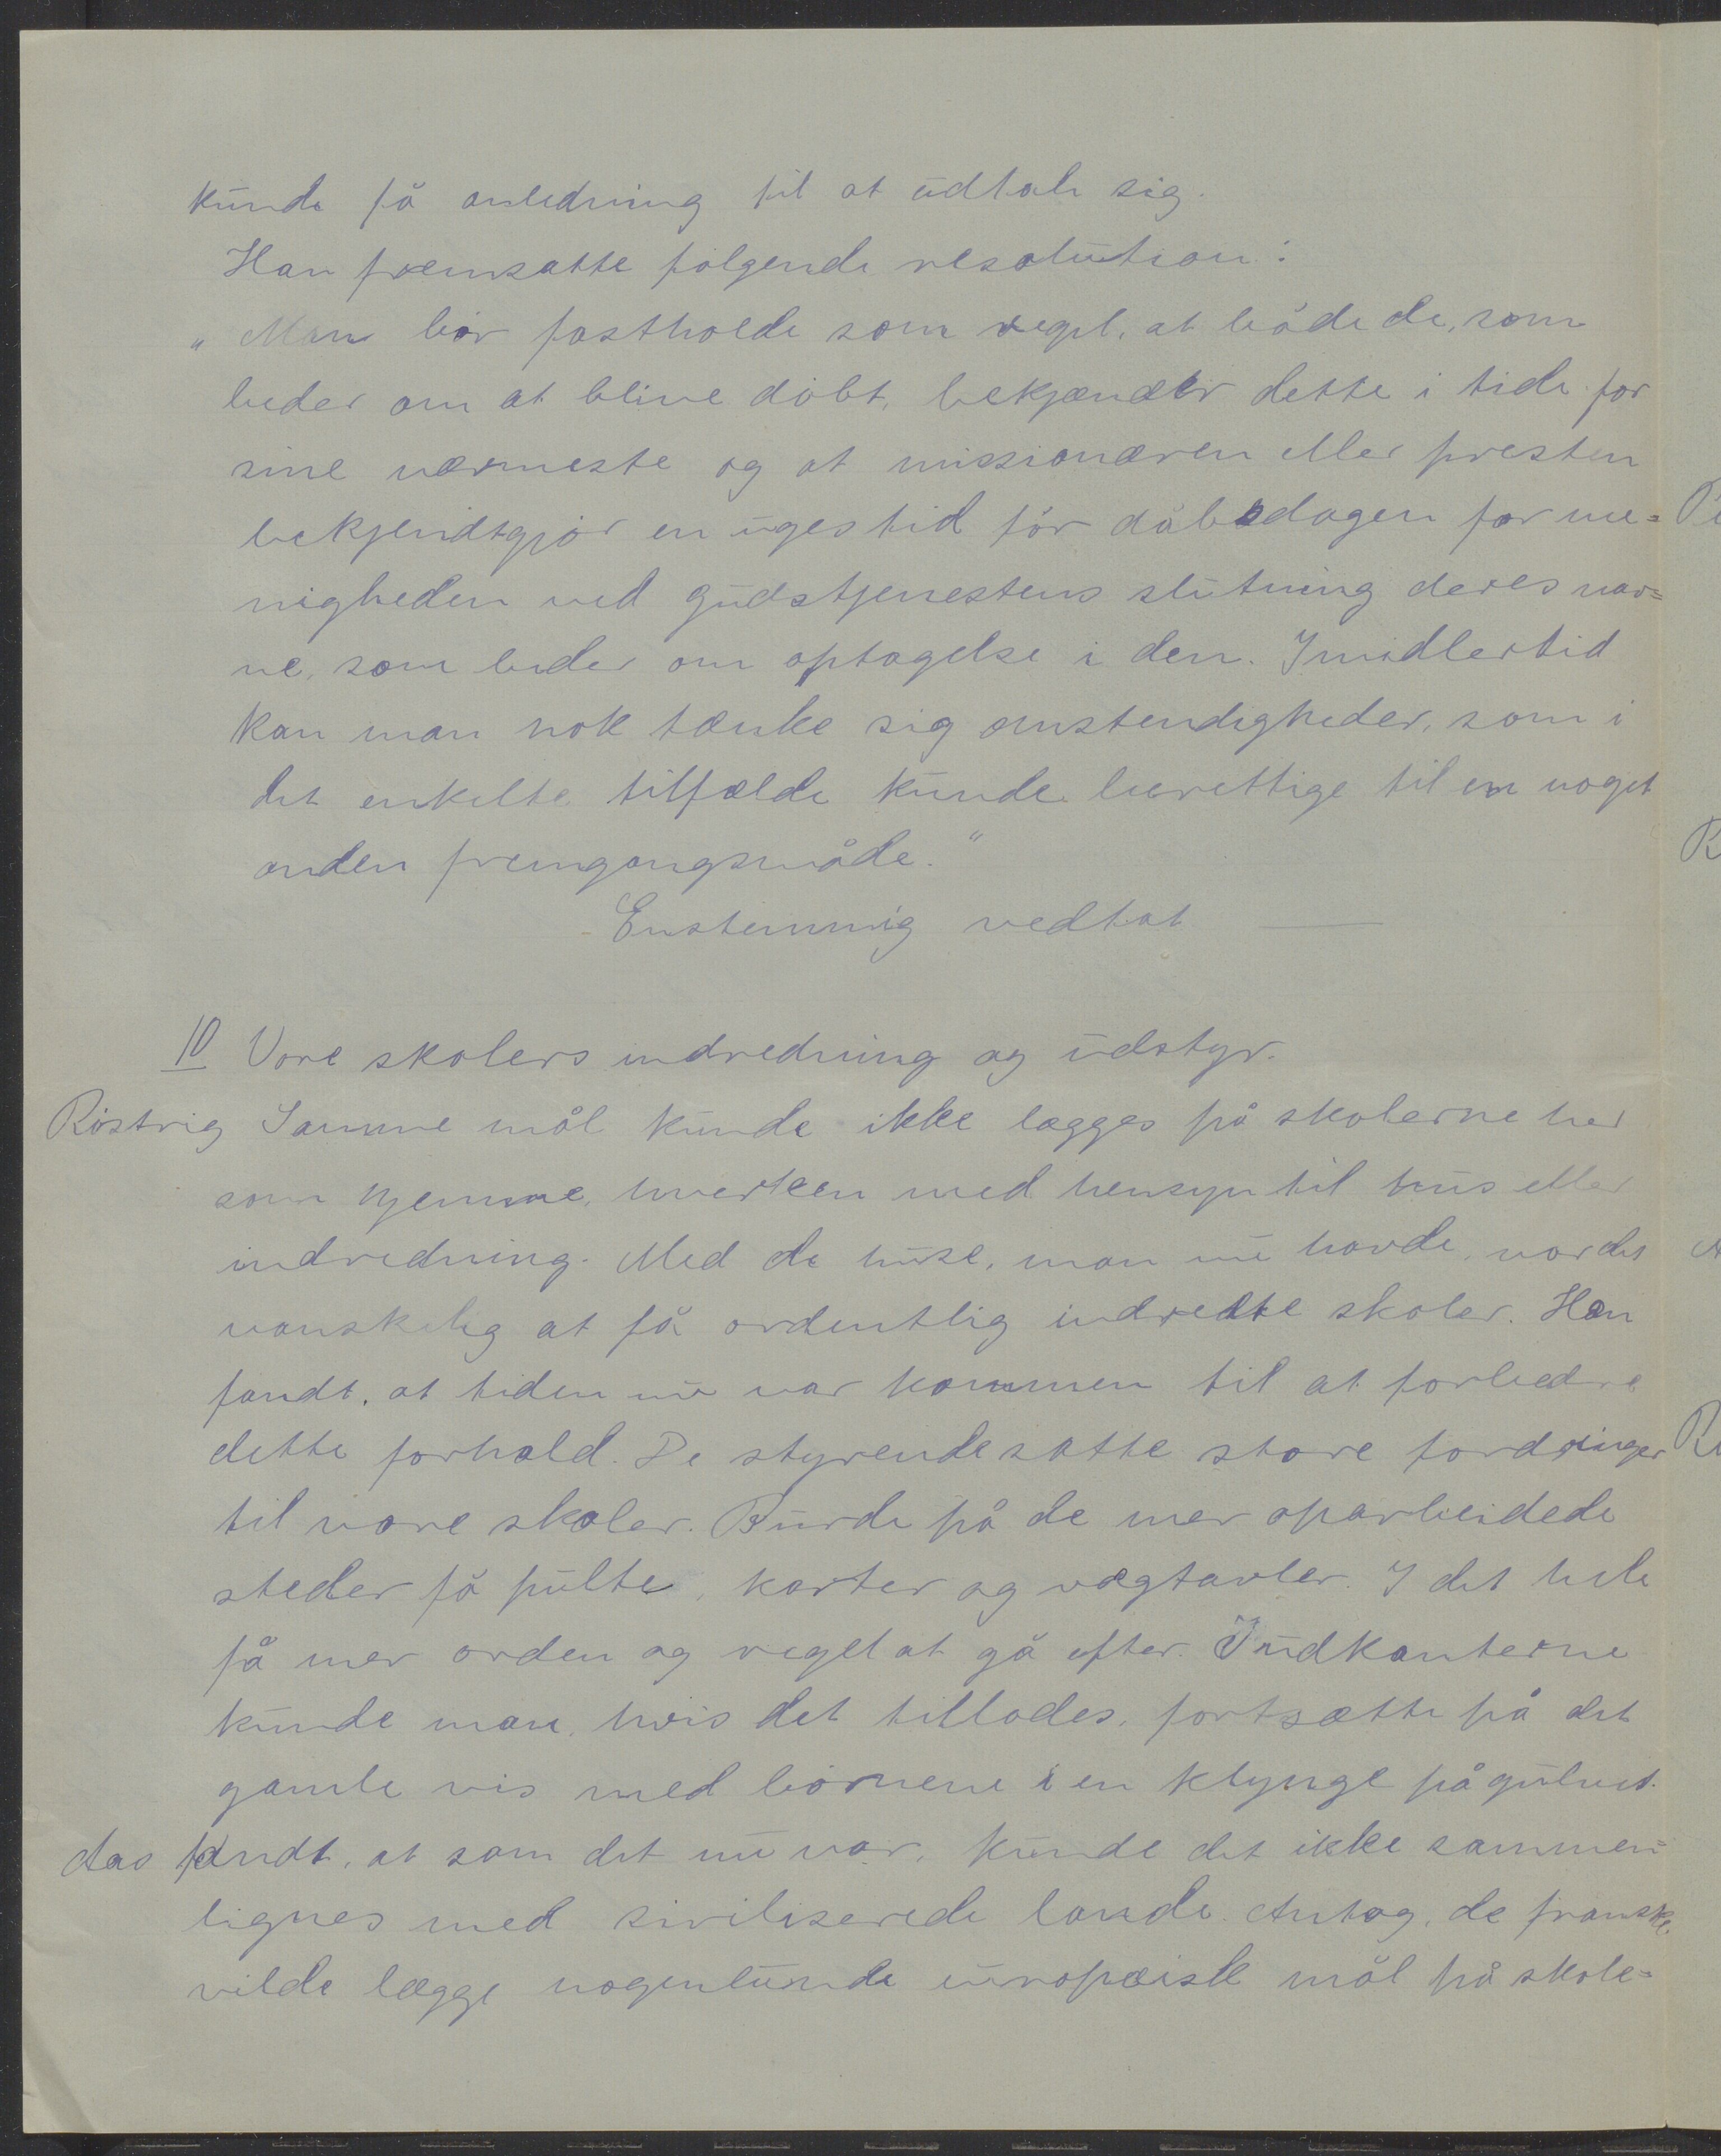 kunde få anledning til at udtale sig.
Han fremsatte følgende resolution:
„Man bör fastholde som regel, at både de, som
beder om at blive döbt, bekjænder dette i tide for
sine nærmeste og at missionæren eller presten
bekjendtgjör en uges tid för dåbsdagen for me=
nigheden ved gudstjenestens slutning deres nav=
ne, som beder om optagelse i den. Imidlertid
kan man nok tænke sig omstendigheder, som i
det enkelte tilfælde kunde berettige til en noget
anden fremgangsmåde.“
Enstemmig vedtat. —
10 Vore skolers indredning og udstyr.
Röstvig Samme mål kunde ikke lægges på skolerne her
som hjemme, hverken med hensyn til hus eller
indredning. Med de huse, man nu havde, var det
vanskelig at få ordentlig indredte skoler. Han
fandt, at tiden nu var kommen til at forbedre
dette forhold. De styrende satte store fordringer
til vore skoler. Burde på de mer oparbeidede
steder få pulte, karter og vægtavler. I det hele
få mer orden og regel at gå efter. I udkanterne
kunde man, hvis det tillodes, fortsætte på det
gamle vis med börnene i en klynge på gulvet.
Aas fandt, at som det nu var, kunde det ikke sammen=
lignes med siviliserede lande. Antog, de franske
vilde lægge nogenlunde europæisk mål på skole=